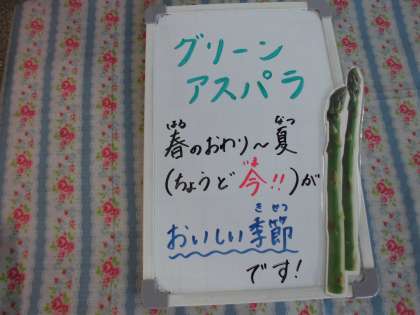 グリーン
アスパラ
春のおわり～夏
はる なつ
(ちょうど今!!)が
いま
おいしい季節
きせつ
です!